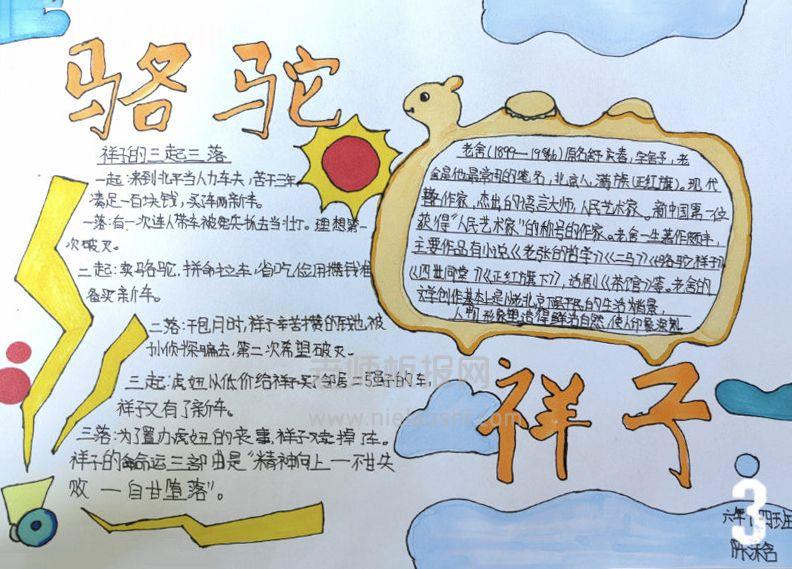 骆驼
祥子的三起三落
一起:来到北平当人力车夫,苦干三年,
满足一百块钱,买辆新车。
一落:有一次连人带车被宪兵抓去当壮丁。理想第一
次破灭。
二起:卖骆驼,拼命拉车,省吃俭用攒钱准
备买新车。
二落:干包月时,祥子辛苦攒的钱也被
孙侦探骗去,第二次希望破灭。
三起:虎妞以低价给祥子买了邻居二强子的车,
祥子又有了新车。
三落:为了置办虎妞的丧事,祥子卖掉了车。
祥子的命运三部曲是“精神向上一不甘失
败 一自甘堕落”。
老舍(1899—1966)原名舒庆春,字舍予,老
舍是他最常用的笔名,北京人,满族(正红旗)。现代
著名作家,杰出的语言大师,人民艺术家。新中国第一位
获得“人民艺术家”的称号的作家。老舍一生著作颇丰,
主要作品有小说《老张的哲学》《二马》《骆驼祥子》
《四世同堂》《正红旗下》,话剧《茶馆》等。老舍的
文学创作基本上是以北京底层平民的生活为背景,
人物形象塑造得鲜活自然,使人印象深刻
祥子
老师板报网
3